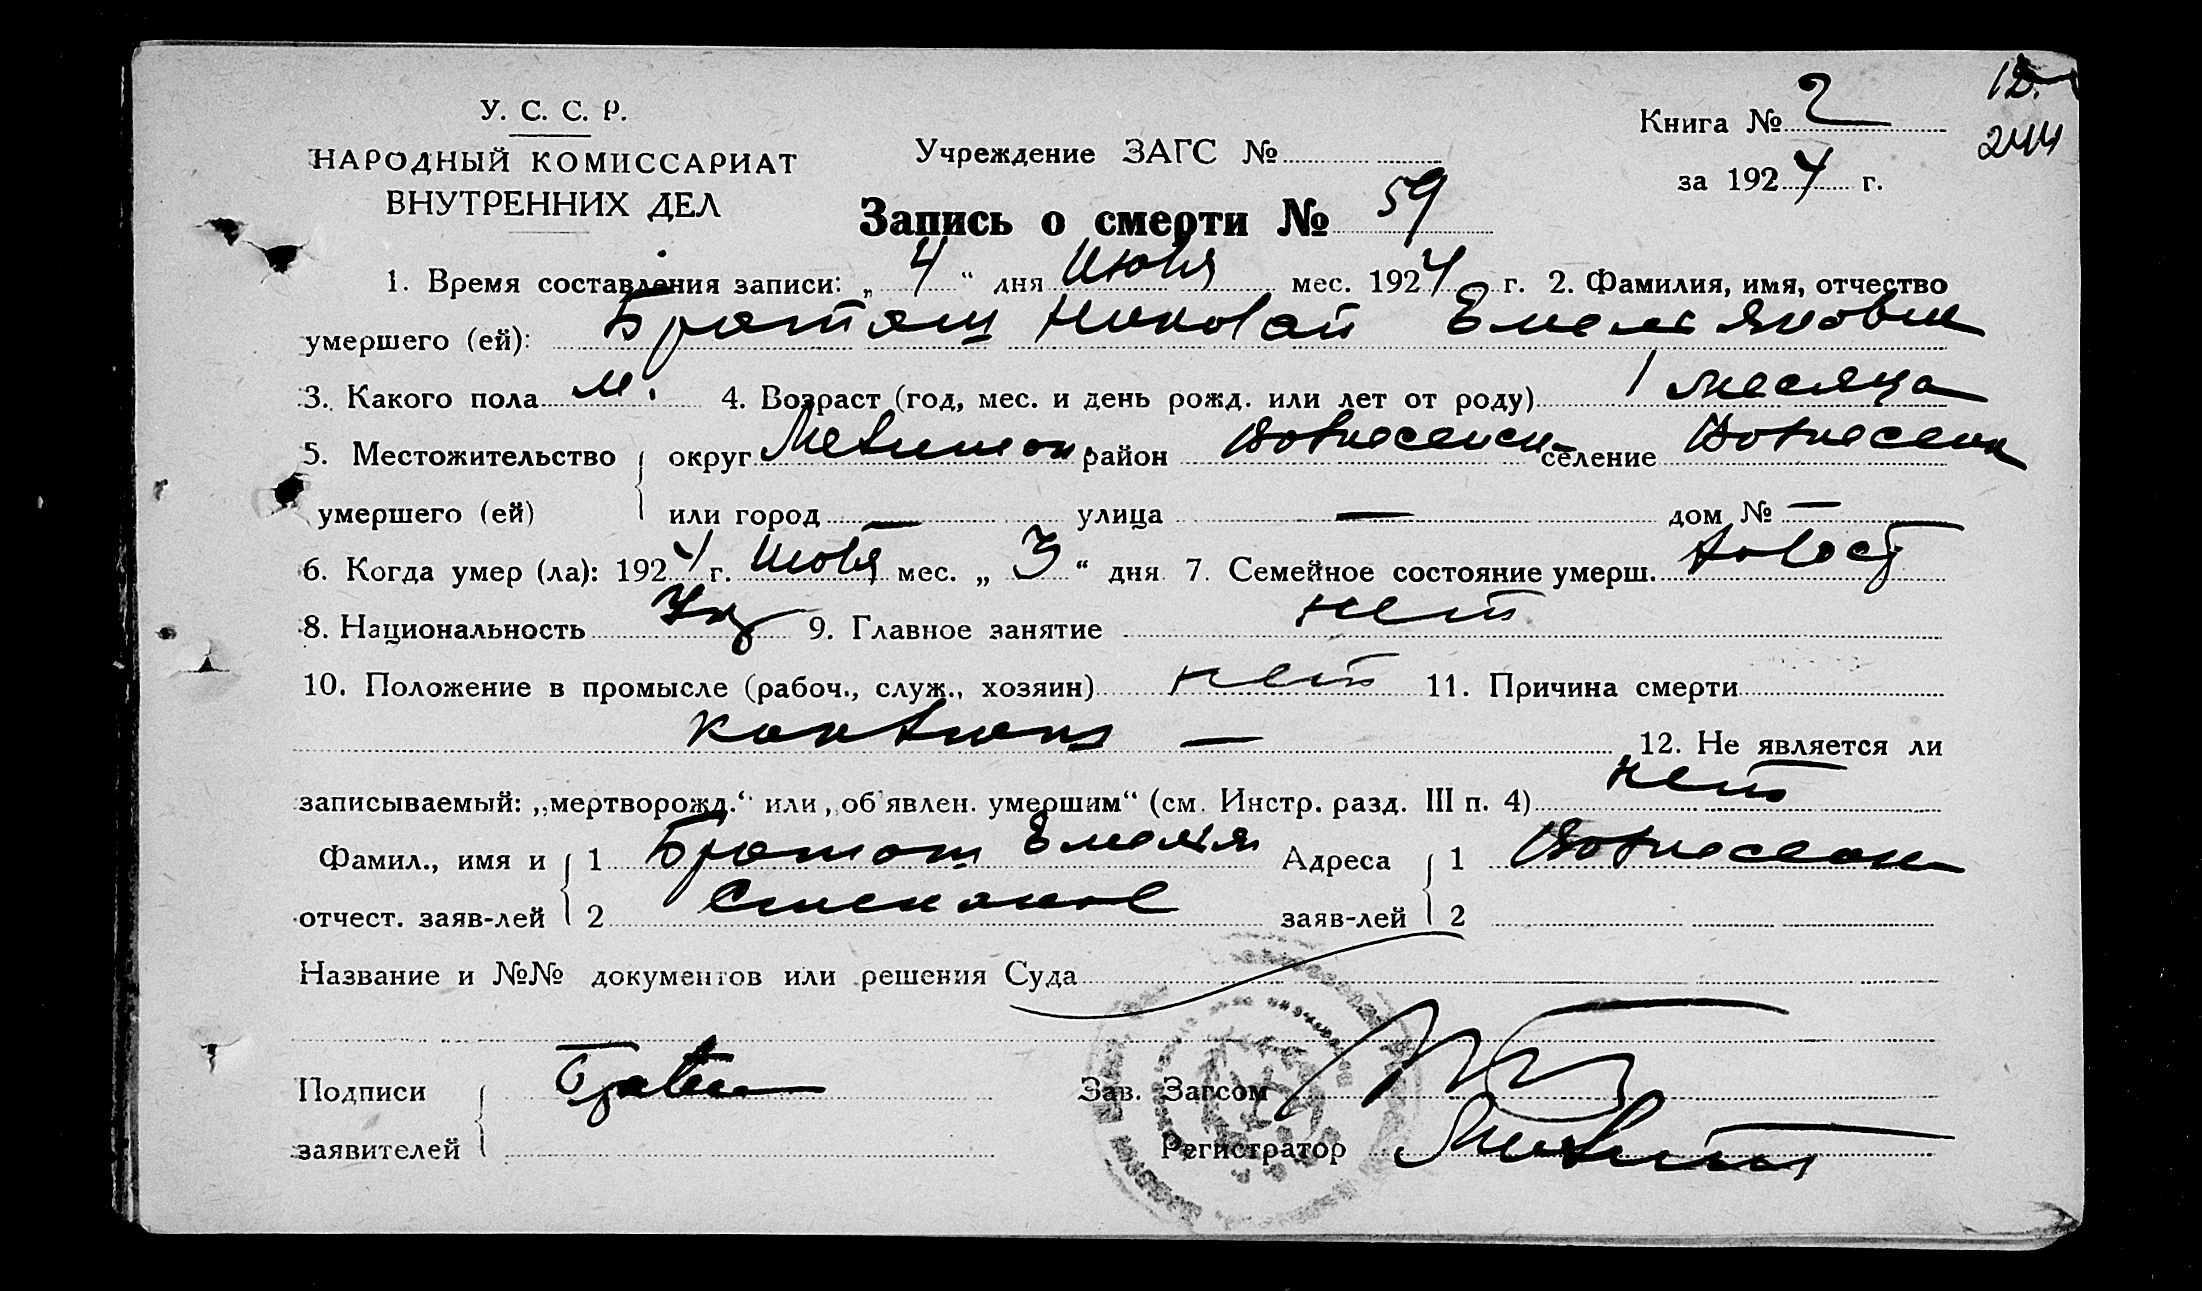 У. С. С. Р.
НАРОДНЫЙ КОМИССАРИАТ
ВНУТРЕННИХ ДЕЛ
Учреждение ЗАГС №
Книга № 2
244
за 1924 г.
Запись о смерти № 59
1. Время составления записи: „ 4 “ дня Июля мес. 1924 г. 2. Фамилия, имя, отчество
умершего (ей): Браташ Николай Емельянович
3. Какого пола м. 4. Возраст (год, мес. и день рожд. или лет от роду) 1 месяца
5. Местожительство округ район Вознесенск селение Вознесенк
умершего (ей) или город — улица — дом № —
6. Когда умер (ла): 1924 г. Июля мес. „ 3 “ дня 7. Семейное состояние умерш. холост
8. Национальность Укр 9. Главное занятие нет
10. Положение в промысле (рабоч., служ., хозяин) нет 11. Причина смерти
— 12. Не является ли
записываемый: „мертворожд.“ или „об'явлен. умершим“ (см. Инстр. разд. III п. 4) нет
Фамил., имя и 1 Браташ Емельян Адреса 1 Вознесенк
отчест. заяв-лей 2 Степанов заяв-лей 2
Название и №№ документов или решения Суда
Подписи Зав. Загсом
заявителей Регистратор